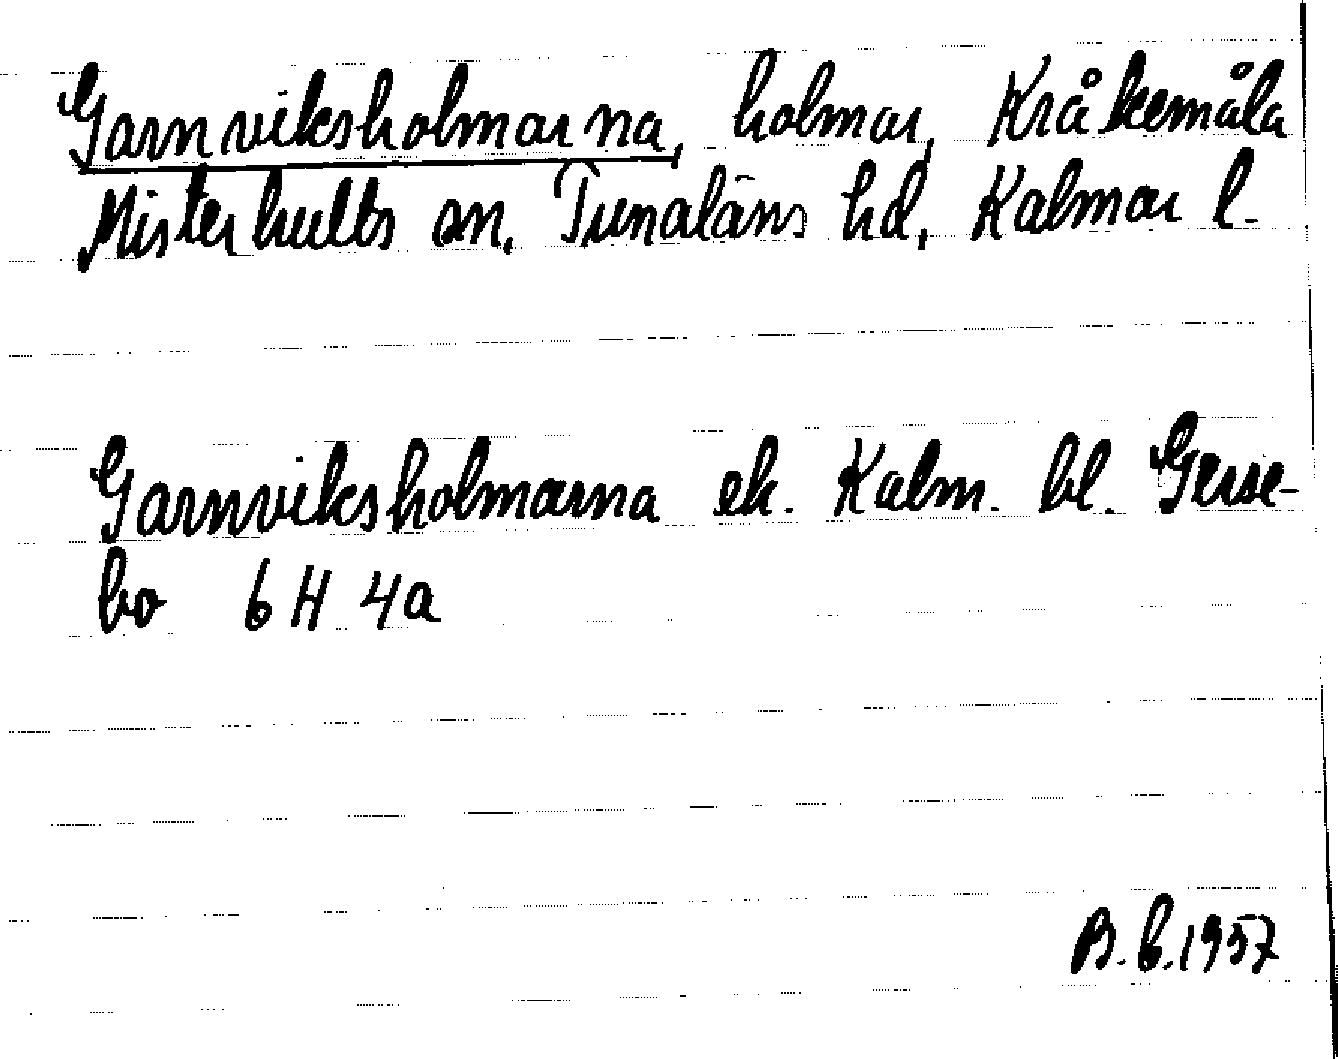 Garnviksholmarna, holmar, Kråkemåla
Misterhults sn, Tunaläns hd, Kalmar l.
Garnviksholmarna ek. Kalm. bl. Gerse-
bo 6H 4a
B.b.1957